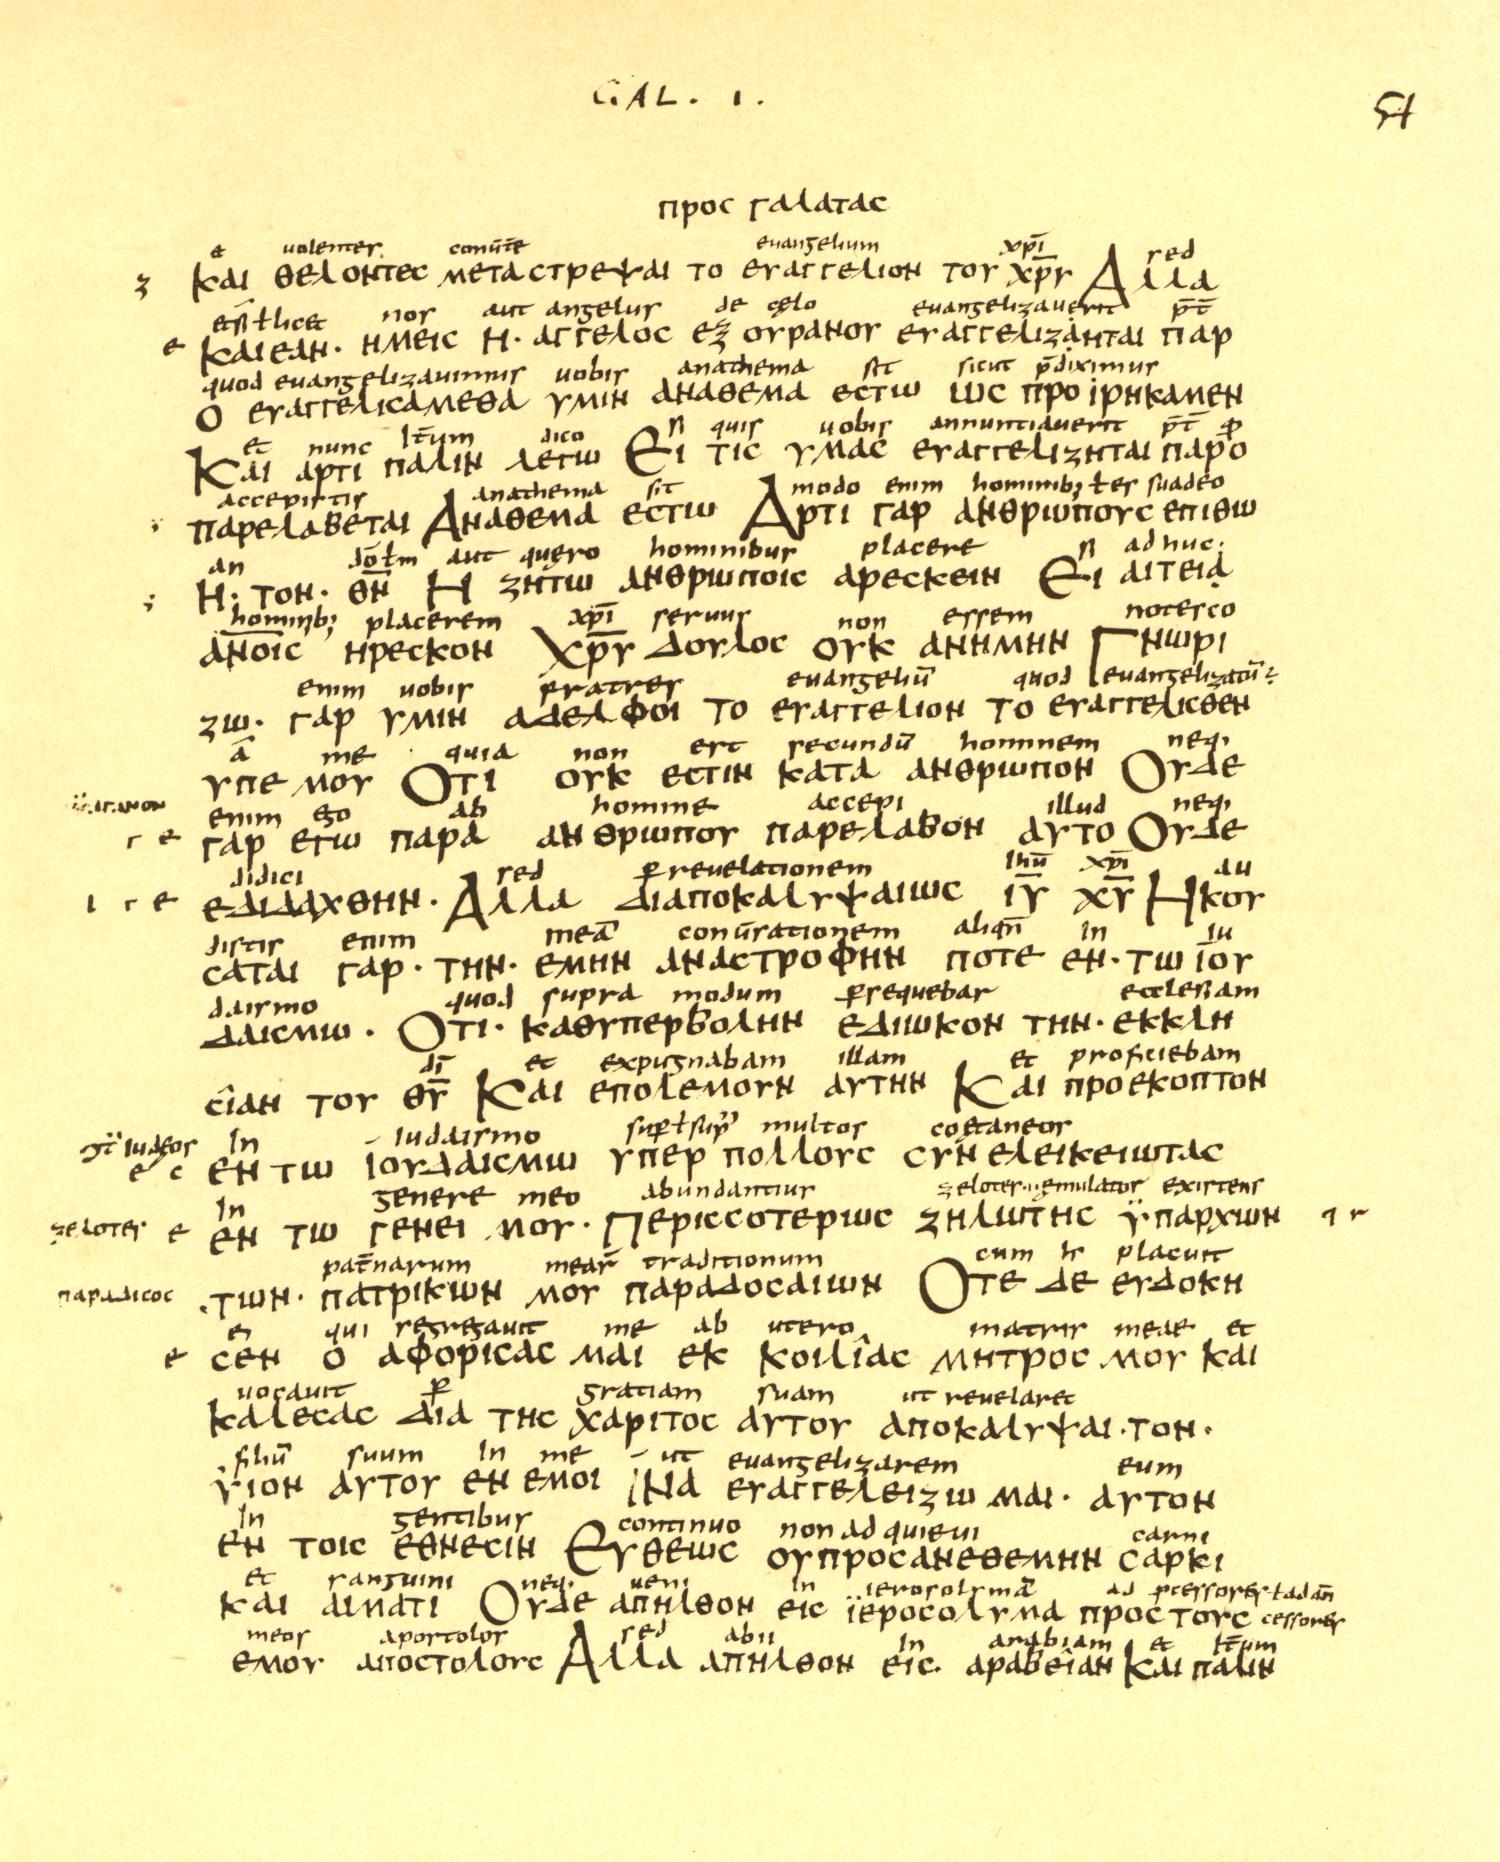 GAL. 1.
54
προς γαλατας
et uolentes conūte euangelium xp̄i sed
και θελοντες μεταστρεψαι το ευαγγελιον του χρ̄υ Αλλα
nos aut angelus de cęlo euangelizauerit p̄t̄
Και εαν· ημεις η· αγγελος εξ ουρανου ευαγγελιζηται παρ
quod euangelizauimus uobis anathema sit sicut p̄diximus
ο ευαγγελισαμεθα υμιν αναθεμα εστω ως προιρηκαμεν
et nunc it̄um dico si quis uobis annuntiauerit p̄t̄
Και αρτι παλιν λεγω Ει τις υμας ευαγγελιζηται παρο
accepistis anathema sit modo enim suadeo
παρελαβεται Αναθεμα εστω Αρτι γαρ ανθρωπους επιθω
an aut quęro hominibus placere si adhuc
Η· τον· θ̄ν̄ Η ζητω ανθρωποις αρεσκειν Ει αιτεια
placerem xp̄i seruus non essem notesco
ανοις ηρεσκον Χρ̄υ δουλος ουκ ανημην Γνωρι
enim uobis fratres euangeliū quod euangelizatū
ζω· γαρ υμιν αδελφοι το ευαγγελιον το ευαγγελισθεν
ā me quia non est secundū hominem neq;
υπε μου Οτι ουκ εστιν κατα ανθρωπον Ουδε
enim ego ab homine accepi illud neq;
γαρ εγω παρα ανθρωπου παρελαβον αυτο Ουδε
didici sed reuelationem ihū xp̄i au
εδιδαχθην· Αλλα διαποκαλυψαιως ῑῡ χ̄ῡ Ηκου
distis enim meā conūsationem aliqn̄ in iu
σαται γαρ· την· εμην αναστροφην ποτε εν· τω ιου
daismo quod supra modum psequebar ecclesiam
δαισμω· Οτι· καθυπερβολην εδιωκον την· εκκλη
dī et expugnabam illam et proficiebam
σιαν του θ̄ῡ Και επολεμουν αυτην Και προεκοπτον
In iudaismo multos coetaneos
εν τω ιουδαισμω υπερ πολλους συνελεικειωτας
In genere meo abundantius existens
εν τω γενει μου· Περισσοτερως ζηλωτης υπαρχων
pat̄narum traditionum cum placuit
παραδισος ·των· πατρικων μου παραδοσαιων Οτε δε ευδοκη
qui segregauit me ab utero matris meae et
σεν ο αφορισας μαι εκ κοιλιας μητρος μου και
uocauit gratiam suam ut reuelaret
καλεσας δια της χαριτος αυτου αποκαλυψαι·τον·
filiū suum In me ut euangelizarem eum
υιον αυτου εν εμοι ινα ευαγγελειζω μαι· αυτον
In gentibus continuo non adquieui carni
εν τοις εθνεσιν Ευθεως ουπροσανεθεμην σαρκι
et sanguini neq; ueni in ierosolymā
και αιματι Ουδε απηλθον εις ϊεροσολυμα προς τους
meos apostolos sed abii In arabiam et it̄um
εμου αποστολους Αλλα απηλθον εις· αραβειαν Και παλιν